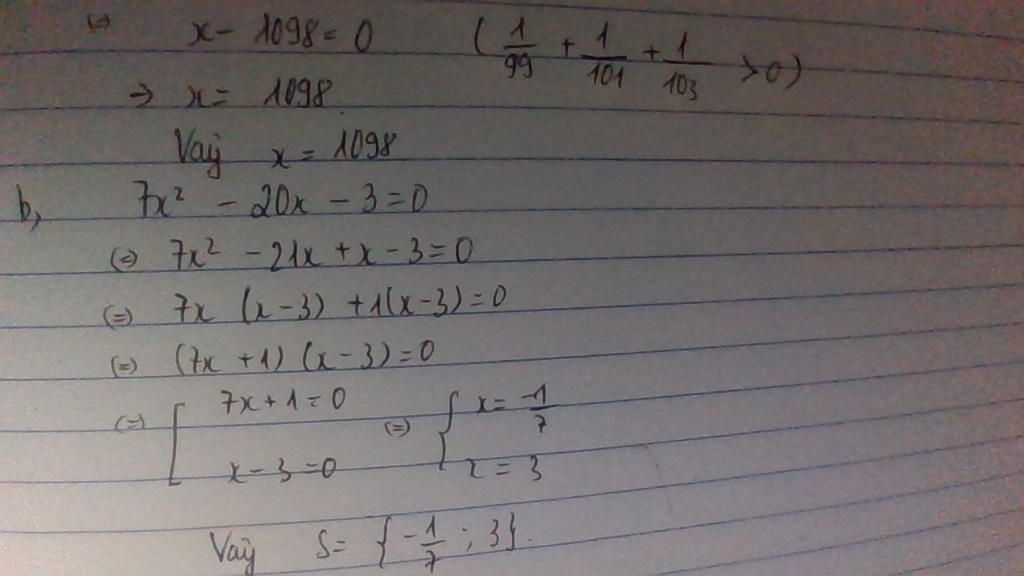 (=) x - 1098 = 0 ( 1/99 + 1/101 + 1/103 > 0)
=> x = 1098
Vaỹ x = 1098
b, 7x² - 20x - 3 = 0
(=) 7x² - 21x + x - 3 = 0
(=) 7x (x - 3) + 1(x - 3) = 0
(=) (7x + 1) (x - 3) = 0
(=) [ 7x + 1 = 0 (=) { x = -1/7
x - 3 = 0 x = 3
Vaỹ S = { -1/7 ; 3}.